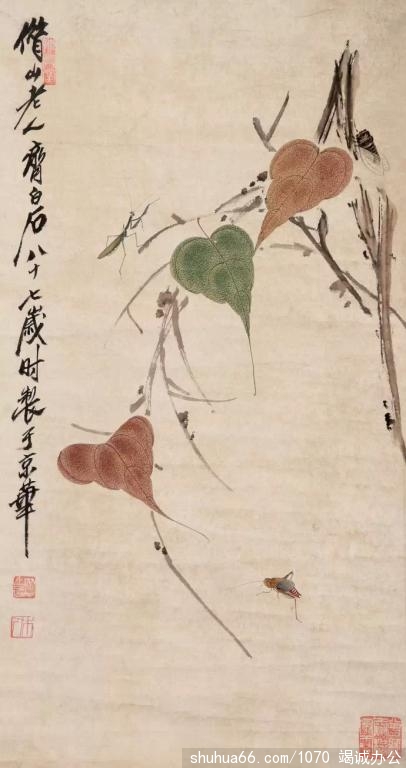 借山老人齊白石八十七歲时製于京華
shuhua66.com/1070 竭诚办公